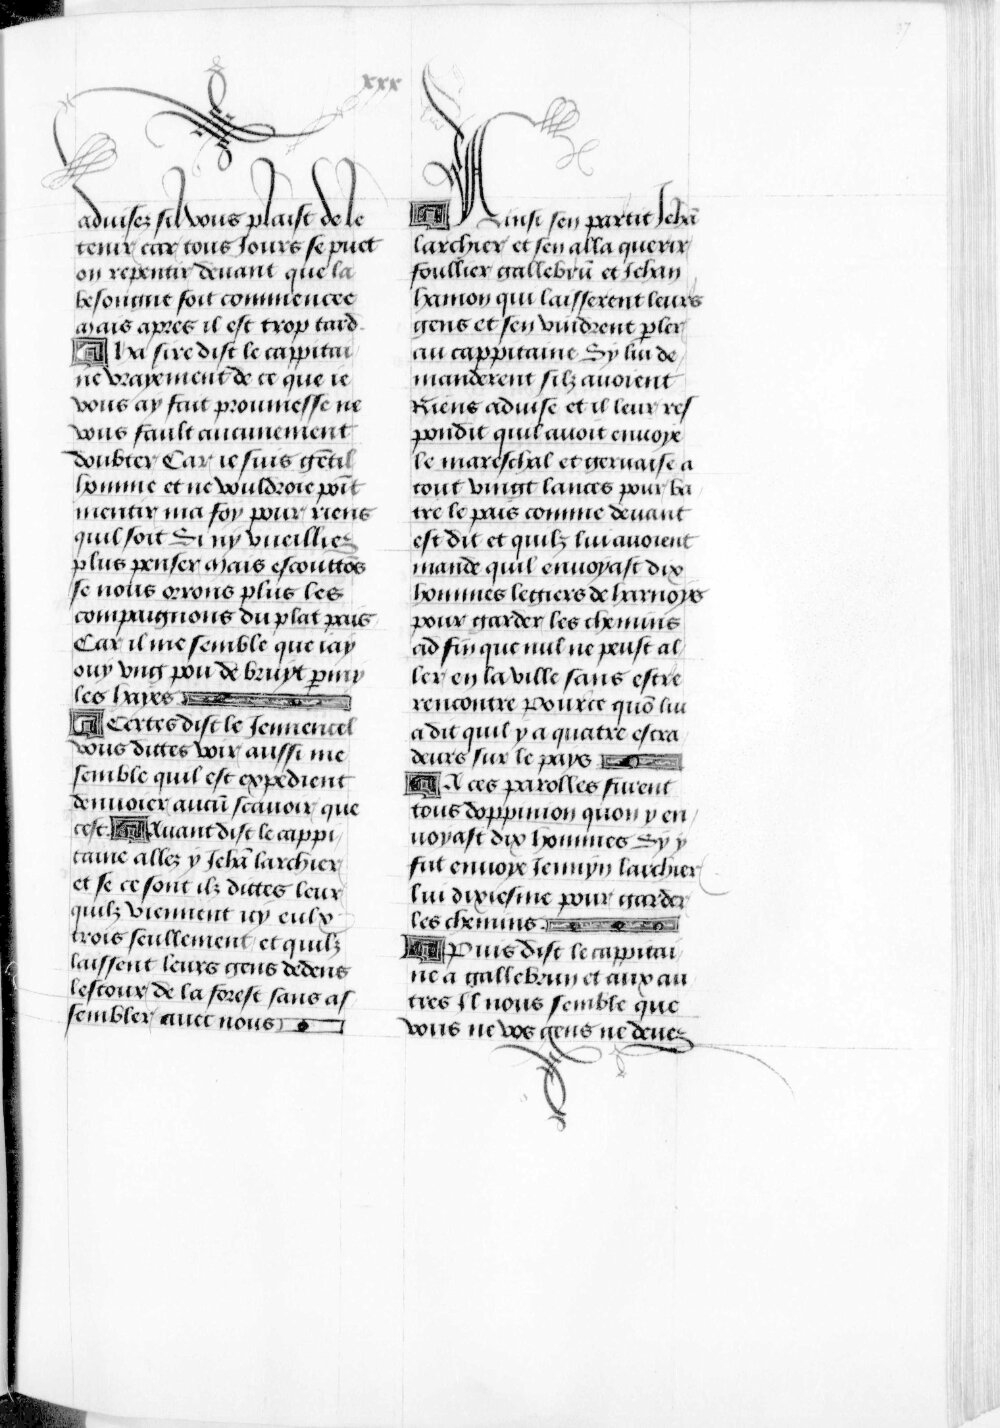 37
xxx
aduisez sil vous plaist de le
tenir car tous Jours se puet
on repentir deuant que la
besongne soit commencee
Mais apres il est trop tard
Ha sire dist le cappitai
ne vrayement de ce que ie
vous ay fait proumesse ne
vous fault aucunement
doubter Car ie suis gẽtil
homme et ne vouldroie poĩt
mentir ma foy pour riens
quil soit Si ny vueilliez
plus penser Mais escouttõs
se nous orrons plus les
compaignons du plat pais
Car il me semble que iay
ouy vng pou de bruyt p̲my
les hayes
Certes dist le Jennencel
vous dittes voir aussi me
semble quil est expedient
denuoier aucũ scauoir que
cest. Auant dist le cappi
taine allez y Jehã larchier
et se ce sont ilz dittes leur
quilz viennent icy eulx
trois seullement et quilz
laissent leurs gens dedens
lestour de la forest sans as
sembler auec nous
Ainsi sen partit Jehã
larchier et sen alla querir
foullier gallebrũ et Jehan
hamon qui laisserent leurs
gens et sen vindrent p̲ler
au cappitaine Sy lui de
manderent silz auoient
Riens aduise et il leur res
pondit quil auoit enuoye
le mareschal et geruaise a
tout vingt lances pour ba
tre le pais comme deuant
est dit et quilz lui auoient
mande quil enuoyast dix
hommes legiers de harnoys
pour garder les chemins
ad fin que nul ne peust al
ler en la ville sans estre
rencontre Pource quõ lui
a dit quil y a quatre estra
deurs sur le pays
A ces parolles furent
tous doppinion quon y en
uoyast dix hommes Sy y
fut enuoye Jennyn larchier
lui dixiesme pour garder
les chemins.
Puis dist le cappitai
ne a gallebrun et aux au
tres Il nous semble que
vous ne vos gens ne deuez